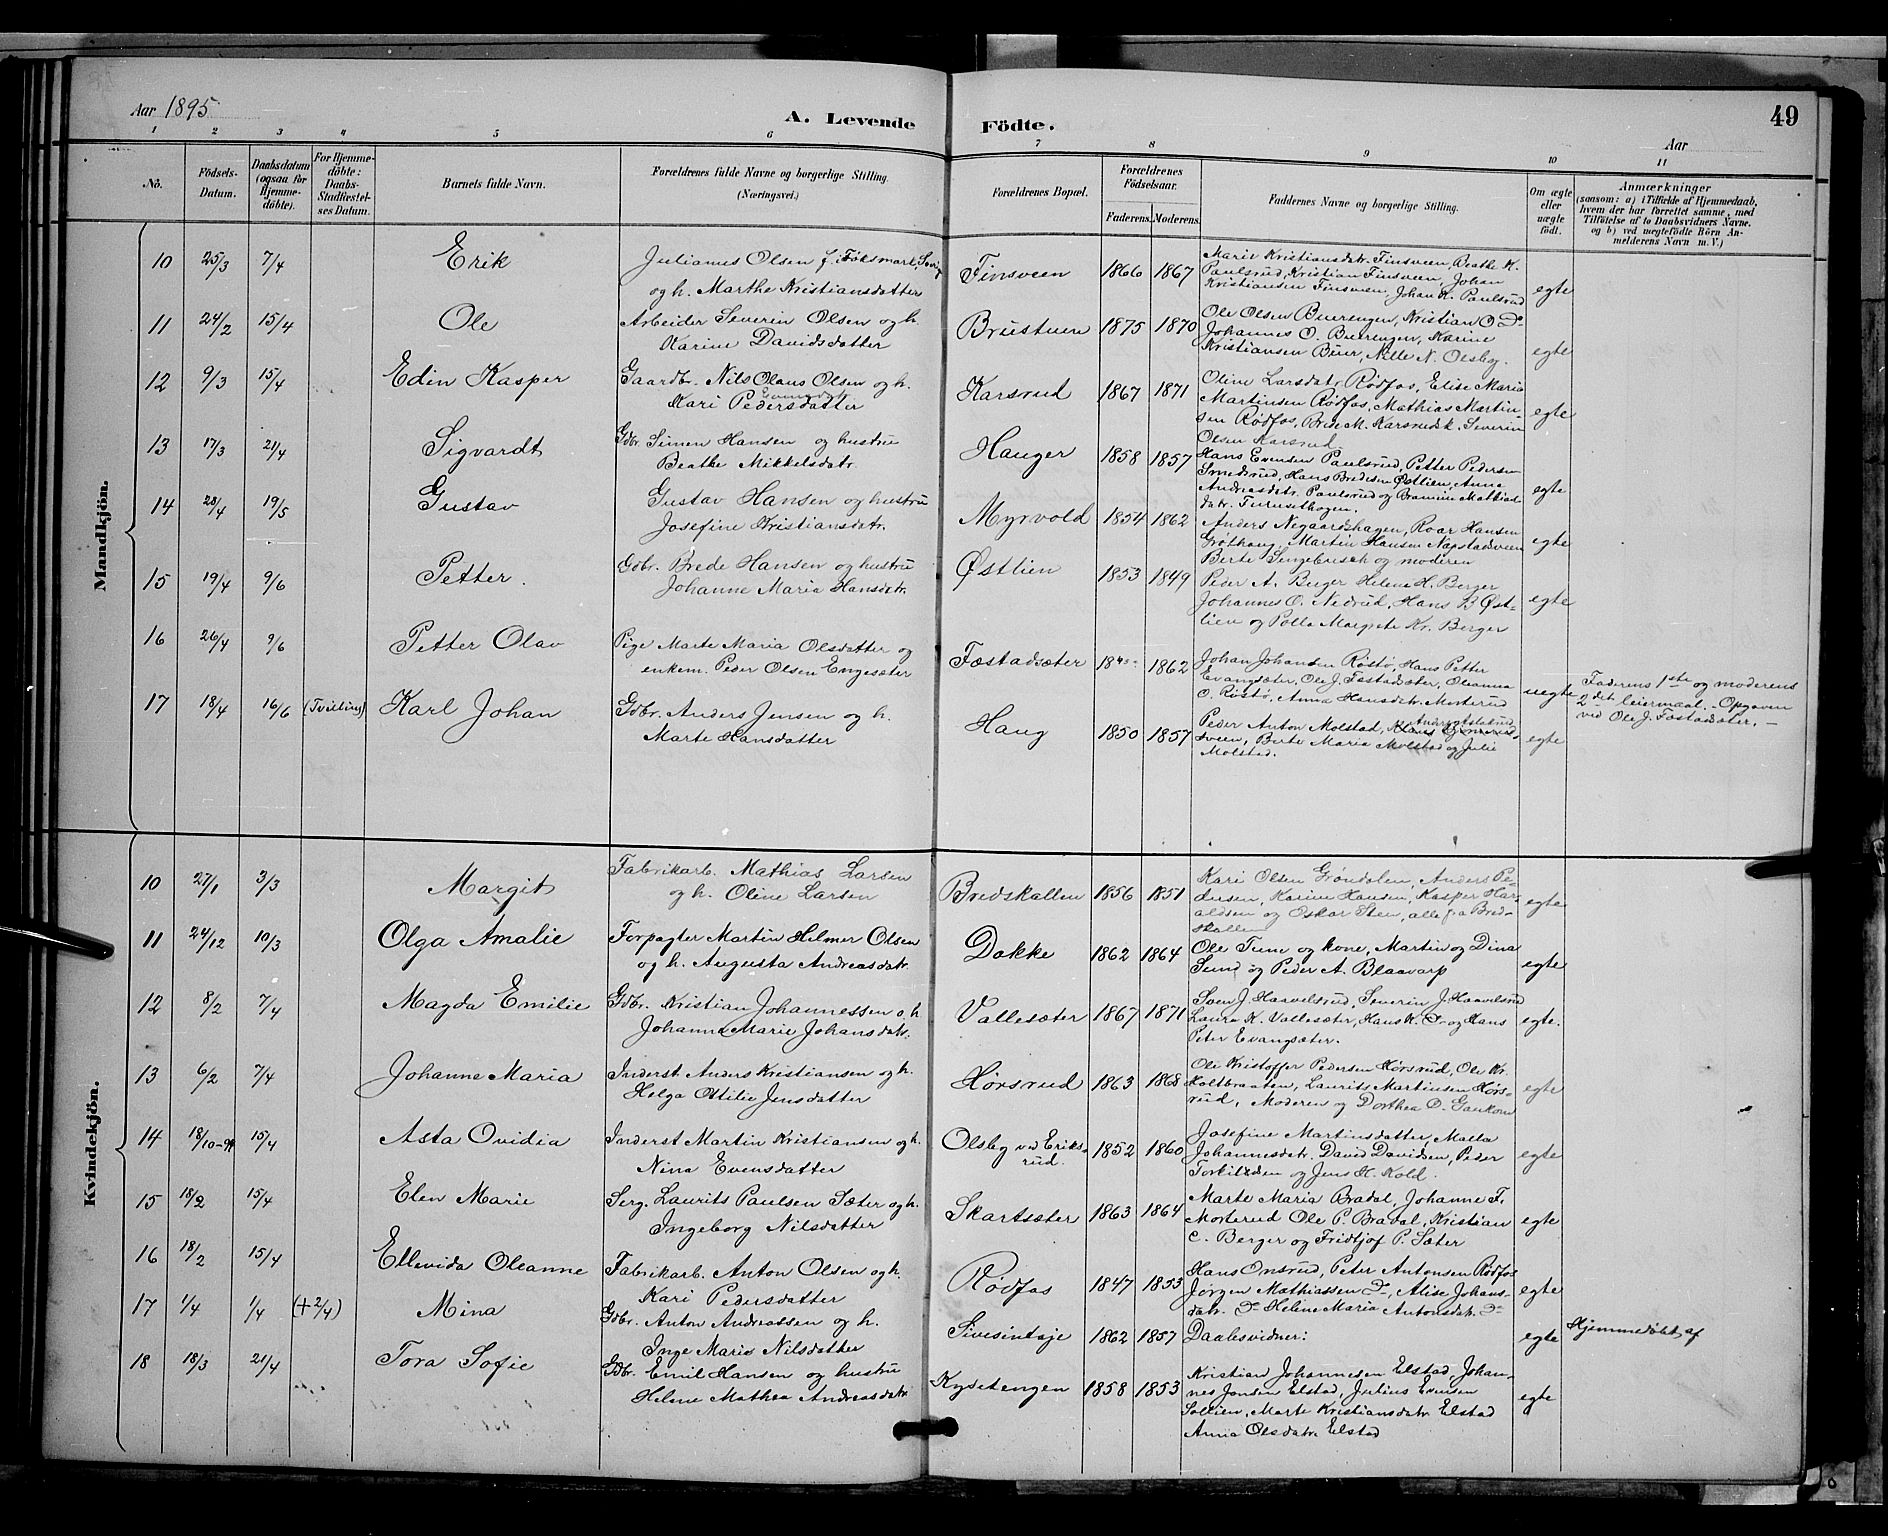 Aar 1895
A. Levende Födte.
49
Aar
1 2 3 4 5 6 7 8 9 10 11
No.
Födsels-Datum.
Daabsdatum (ogsaa for Hjemme-döbte).
For Hjemme-döbte: Daabs-Stadfæstel-ses Datum.
Barnets fulde Navn.
Forældrenes fulde Navne og borgerlige Stilling. (Næringsvei.)
Forældrenes Bopæl.
Forældrenes Födselsaar.
Faderens. Moderens.
Faddernes Navne og borgerlige Stilling.
Om ægte eller uægte födt.
Anmærkninger
(saasom: a) i Tilfælde af Hjemmedaab, hvem der har forrettet samme, med Tilföielse af to Daabsvidners Navne. og b) ved uægtefödte Börn An-melderens Navn m. V.)
Mandkjön.
10 25/3 7/4 Erik
Julianus Olsen f. i
og h. Marthe Kristiansdatter
Finsveen 1866 1867
Marie Kristiansdatr. Finsveen, Beathe K.
Paulsrud, Kristian Finsveen, Johan
Kristiansen Finsveen, Johan K. Paulsrud
egte
11 24/2 15/4 Ole
Arbeider Severin Olsen og h.
Karine Davidsdatter
Brustuen 1875 1870
Ole Olsen Buerengen, Kristian O. Do
Johannes O. Buerengen, Karine
Kristiansen Buer, Nille N. Olsby.
egte
12 9/3 15/4 Edin Kasper
Gaardbr. Nils Olaus Olsen og h.
Kari Pedersdatter
Karsrud 1867 1871
Oline Larsdatr. Rødfos, Elise Maria
Martinsen Rødfos, Mathias Martin-
sen Rødfos, Brede M. Karsrudek. Severin
Olsen Karsrud.
egte
13 17/3 21/4 Sigvardt
Gdbr. Simen Hansen og hustru
Beathe Mikkelsdatr.
Hauger 1858 1857
Hans Evensen Paulsrud, Petter Pedersen
Smedsrud, Hans Bredesen Østlien, Anna
Andreasdatr. Paulsrud og Mathias-
datr.
egte
14 28/4 19/5 Gustav
Gustav Hansen og hustru
Josefine Kristiansdatr.
Myrvold 1854 1862
Anders Negaardshagen, Roar Hansen
Grøthaug, Martin Hansen Napstadsveen
Berte og moderen
egte
15 19/4 9/6 Petter.
Gdbr. Brede Hansen og hustru
Johanne Maria Hansdatr.
Østlien 1853 1849
Peder A. Berger Helene H. Berger
Johannes O. Nedrud, Hans B. Øst-
lien og Margrete Kr. Berger
egte
16 26/4 9/6 Petter Olav
Pige Marte Maria Olsdatter og
enkem. Peder Olsen Engesæter
Fæstadsæter 1862
Johan Johansen Røstø, Hans Petter
Evangsæter, Ole J. Fæstadsæter, Oleanna
O. Røstø, Anna Hansdatr. Morterud
uegte
Faderens 1ste og moderens
2det leiermaal. - Opgaven
ved Ole J. Fæstadsæter. -
17 18/4 16/6 (Tvilling) Karl Johan
Gdbr. Anders Jensen og h.
Marte Hansdatter
Haug 1850 1857
Peder Anton Molstad,
sveen, Berte Maria Molstad og Julie
Molstad.
egte
Kvindekjön.
10 27/1 3/3 Margit
Fabrikarb. Mathias Larsen
og h. Oline Larsen
Bredskallen 1856 1851
Kari Olsen Grøndalen, Anders Pe-
dersen, Karine Hansen, Kasper Har-
aldsen og Oskar Sten, alle fra Bred-
skallen
egte
11 24/12 10/3 Olga Amalie
Forpagter Martin Helmer Olsen
og h. Augusta Andreasdatr.
Dokke 1862 1864
Ole Tune og kone, Martin og Dina
Sund og Peder A. Blaavarp
egte
12 8/2 7/4 Magda Emilie
Gdbr. Kristian Johannessen o. h.
Johanne Marie Johansdatr.
Vallesæter 1867 1871
Sven J. Haavelsrud, Severin J. Haavelsrud
Laura K. Vallesæter, Hans K. Do og Hans
Peter Evangsæter.
egte.
13 6/2 7/4 Johanne Maria
Inderst Anders Kristiansen og h.
Helga Ottilie Jensdatter
Hørsrud 1863 1868
Ole Kristoffer Pedersen Hørsrud, Ole Kr.
Holtbraaten, Laurits Martinsen Hørs-
rud, Moderen og Dorthea
egte
14 18/10-94 15/4 Asta Ovidia
Inderst Martin Kristiansen og h.
Nina Evensdatter
Olsby ved Eriks-
rud. 1852 1860
Josefine Martinsdatter, Malla
Johannesdatr. David Davidsen, Peder
Torkildsen og Jens H. Kold.
egte
15 18/2 15/4 Elen Marie
Serg. Laurits Paulsen Sæter og h.
Ingeborg Nilsdatter
Skartsæter 1863 1864
Marte Maria Bradal, Johanne F.
Morterud Ole P. Bradal, Kristian
C. Berger og Fridtjof P. Sæter
egte
16 18/2 15/4 Ellevida Oleanne
Fabrikarb. Anton Olsen og h.
Kari Pedersdatter
Rødfos 1847 1853
Hans Onsrud, Peter Antonsen Rødfos
Jørgen Mathiassen Do, Alise Johans-
datr. Do Helene Maria Antonsdatr. Do
egte
17 1/4 1/4 (+2/4) Mina
Gdbr. Anton Andreassen og h.
Inge Marie Nilsdatter
Sivesindøje 1862 1857
Daabsvidner:
egte
Hjemmedøbt af
18 18/3 21/4 Tora Sofie
Gdbr. Emil Hansen og hustru
Helene Mathea Andreasdatr.
1858 1853
Kristian Johannesen Elstad, Johan-
nes Jensen Elstad, Julius Evensen
Sollien, Marte Kristiansdatr. Elstad
Anna Olsdatr. Elstad
egte